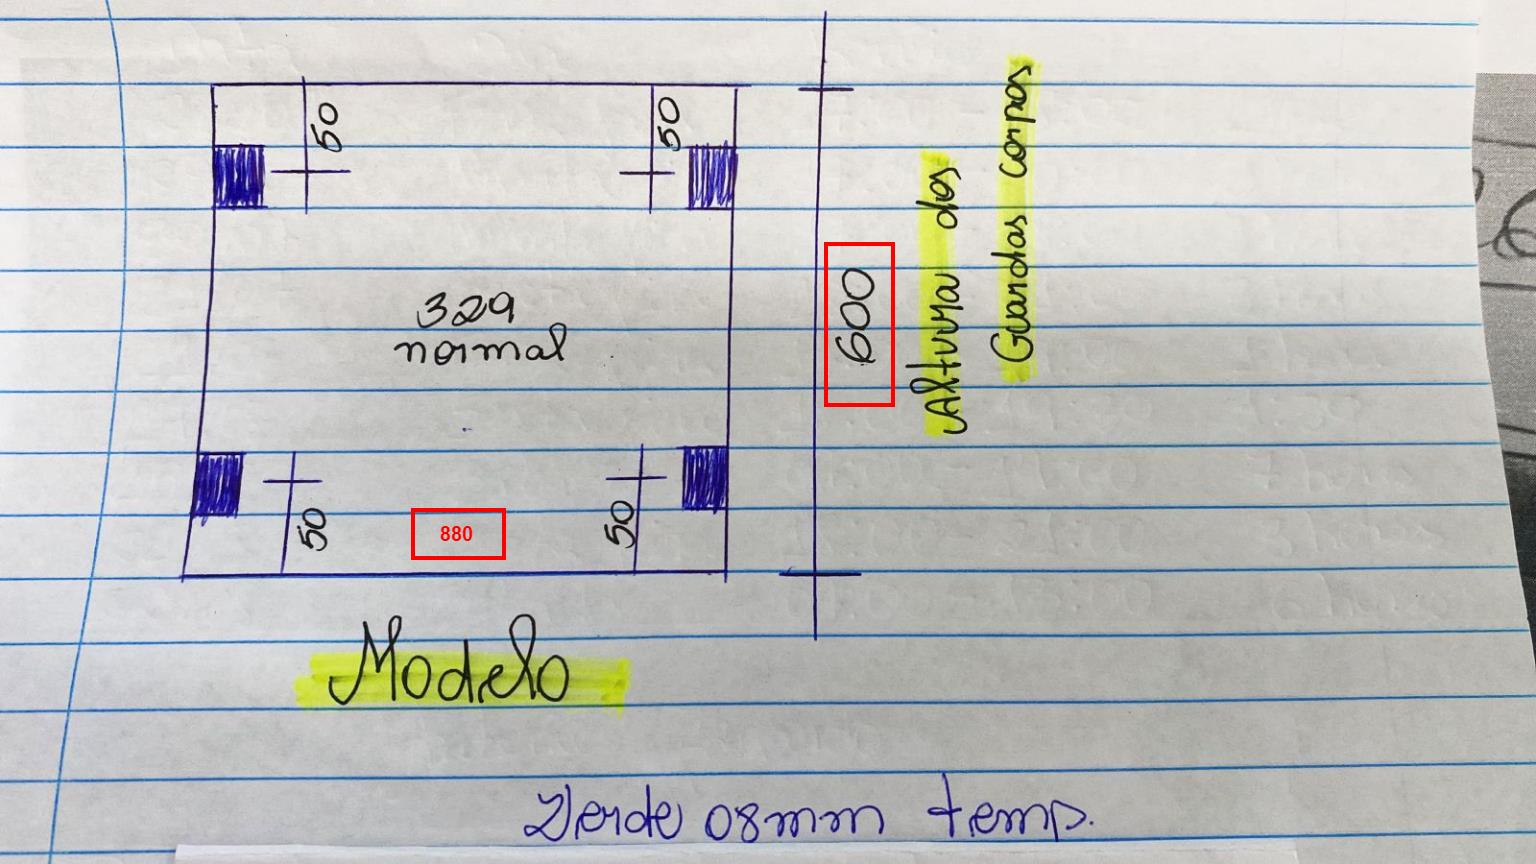 50
50
329
normal
600
Altura dos
Guardas corpos
50
880
50
Modelo
Verde 08mm temp.